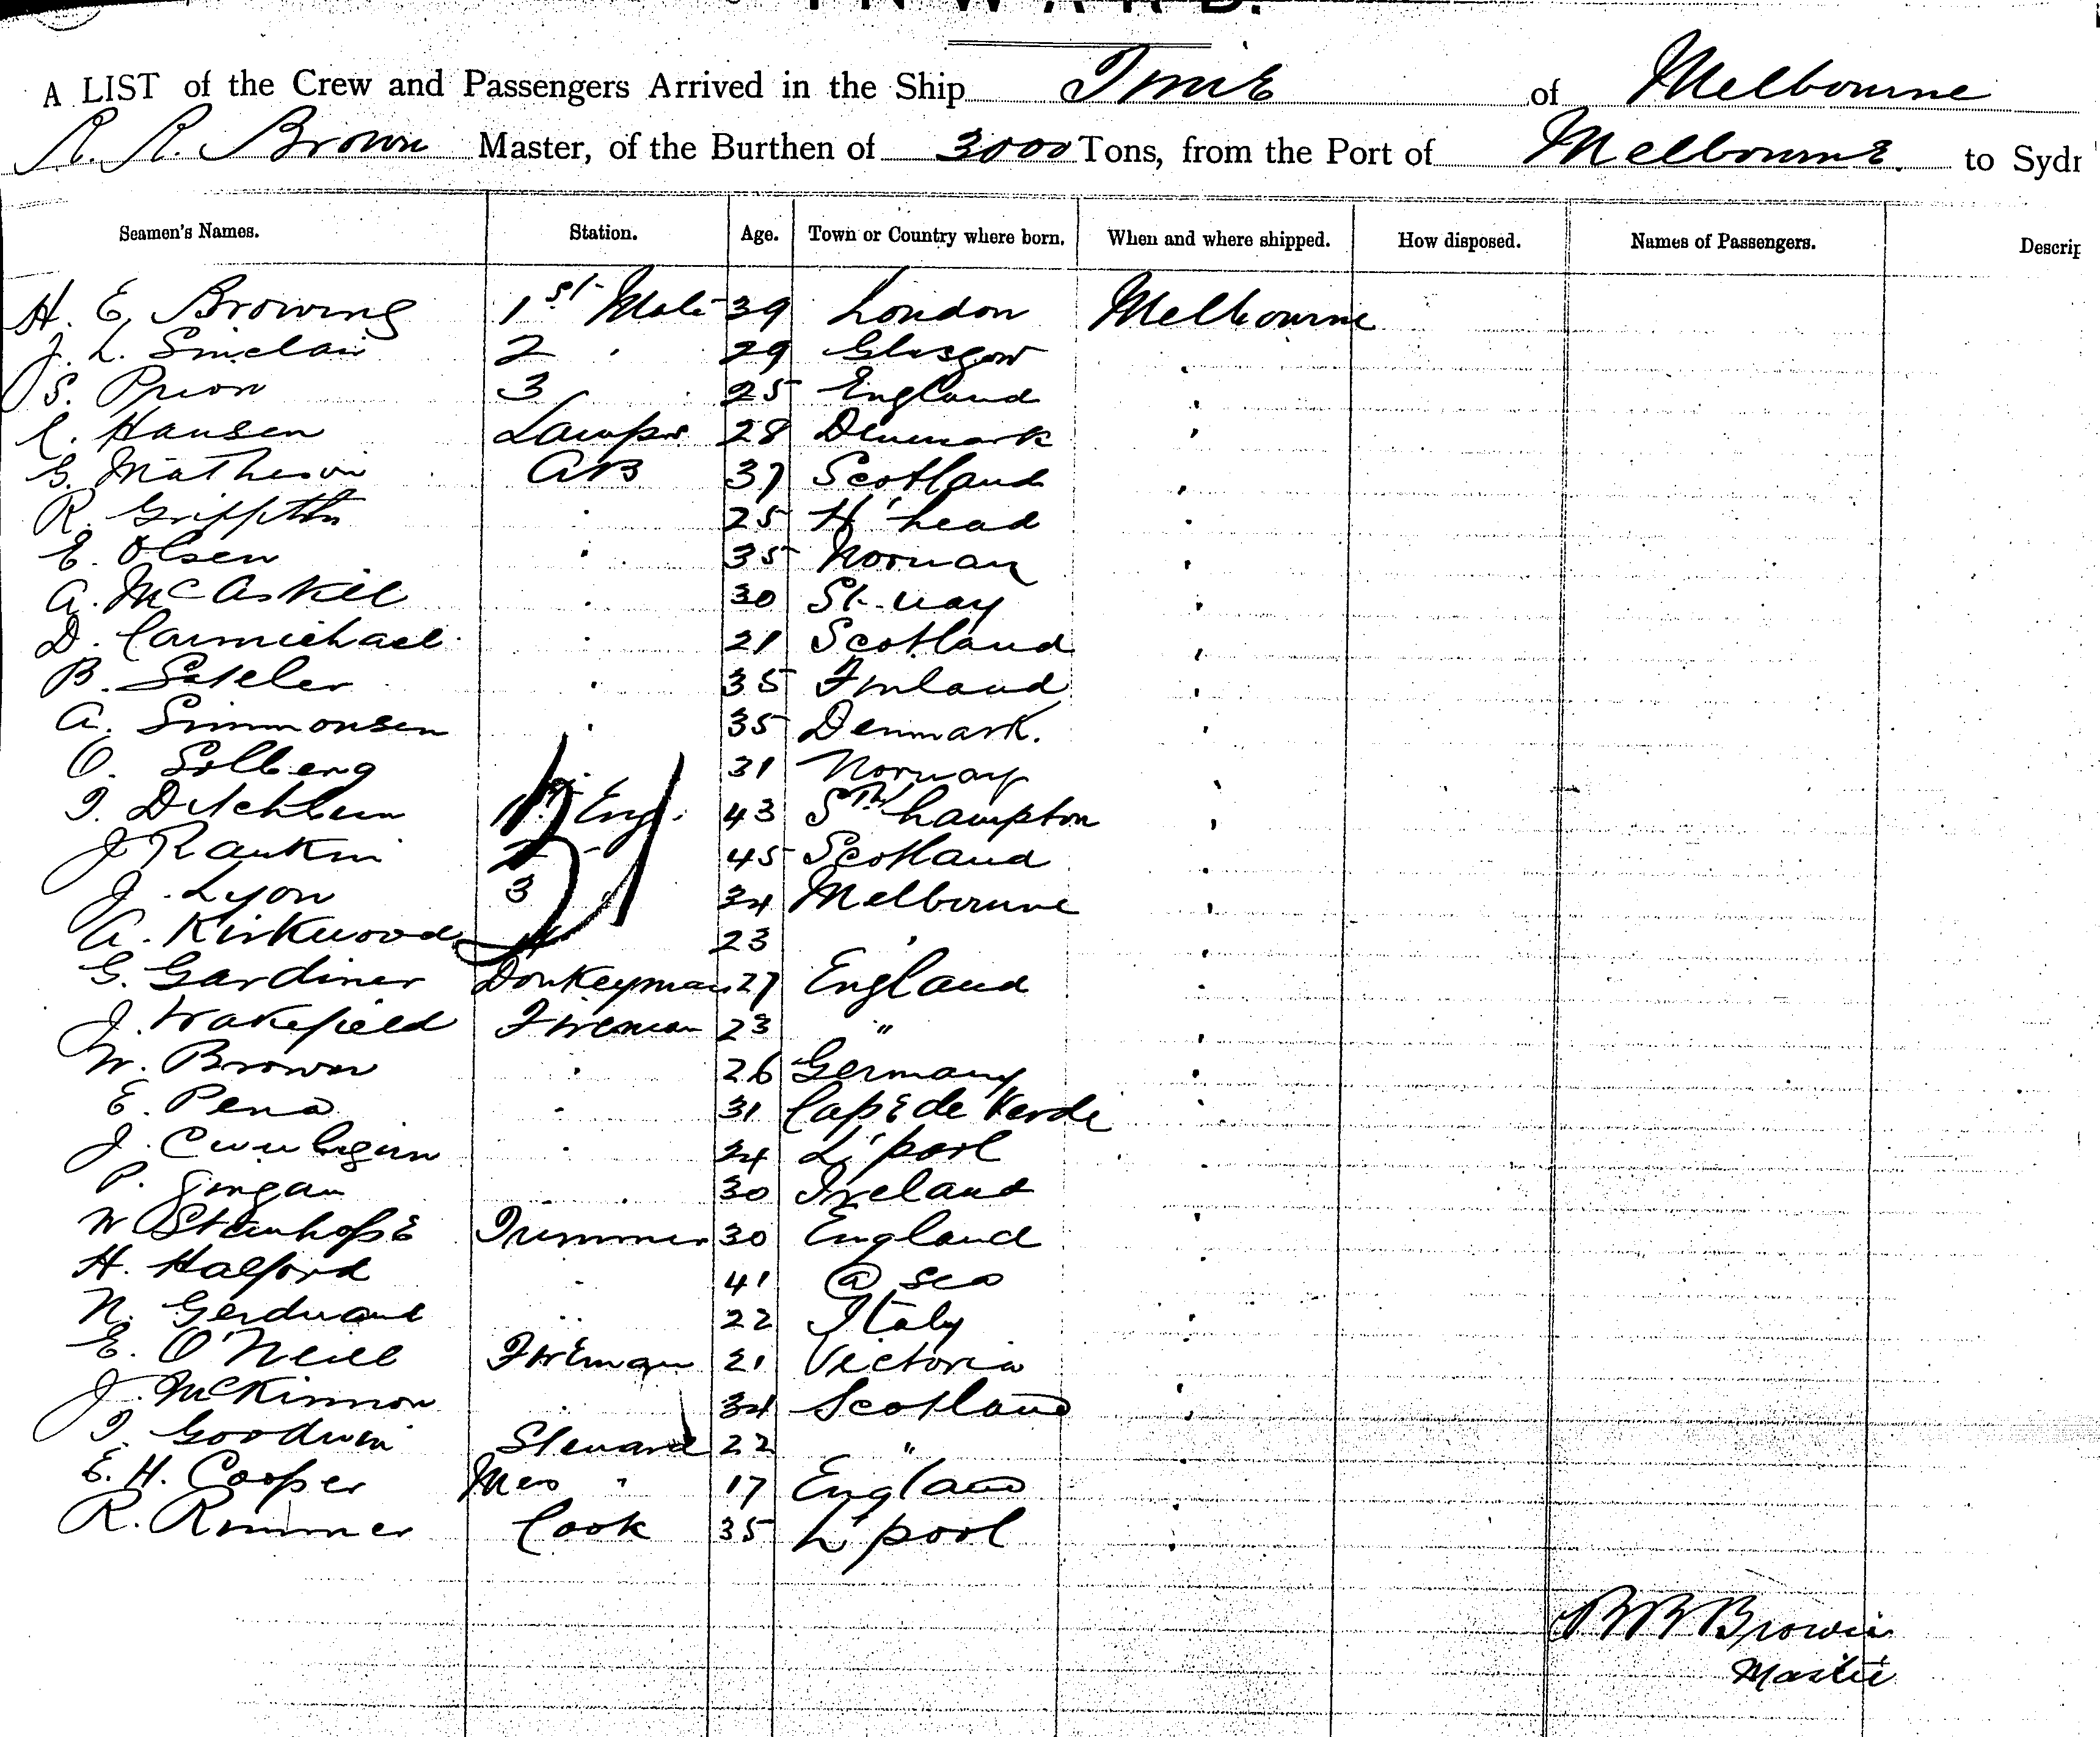 INWARD.
A LIST of the Crew and Passengers Arrived in the Ship Time of Melbourne
R. R. Brown Master, of the Burthen of 3000 Tons, from the Port of Melbourne. to Sydn
Seamen's Names. Station. Age. Town or Country where born. When and where shipped. How disposed. Names of Passengers. Descrip
H. E. Browing 1st Mate 39 London Melbourne
J. L. Sinclair 2 " 29 Glasgow "
S. Prior 3 25 England "
C. Hansen Lampr 28 Denmark "
G. Matheson AB 37 Scotland "
R. " 25 H'head "
E. Olsen " 35 Norway "
A. McAskil " 30 St-way "
D. Carmichael " 21 Scotland "
B. " 35 Finland "
A. Simmonsen " 35 Denmark. "
O. Solberg 31 Norway "
T. Ditchburn 1st Eng. 43 Sth hampton "
J Rankin 2 " 45 Scotland "
J. Lyon 3 34 Melbourne "
A. Kirkwood 4 23 " "
G. Gardiner Donkeyman 27 England "
J. Wakefield Fireman 23 " "
W. Brown " 26 Germany "
E. Pena " 31 Cape de Verde "
J. " 24 L'pool "
P. Gingan " 30 Ireland "
W Stanhope Trimmer 30 England "
H. Halford " 41 @ Sea "
N. " 22 Italy "
E. O'Neill Fireman 21 Victoria "
J. McKinnon " 34 Scotland "
T. Goodwin Steward 22 " "
E. H. Cooper Mess " 17 England "
R. Rimmer Cook 35 L'pool "
R R Brown
Master